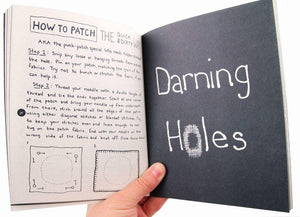 HOW TO PATCH
THE QUICK
& DIRTY WAY
AKA the punk-patch special who needs
Step 1: Snip any loose or hanging threads from
the hole. Pin on your patch, matching the
fabrics. Try not to bunch or stretch the
can help it.
Step 2: Thread your needle with a double length of
thread and tie the ends together. Start at one
of the patch and bring your needle up from
from there, stitch around all the edges of the patch
using either diagonal stitches or blanket stitches. Try
to keep your stitches even and loose enough to not
tug on the patch fabric. End with your needle on the
wrong side of the fabric and knot off.
Darning
Holes